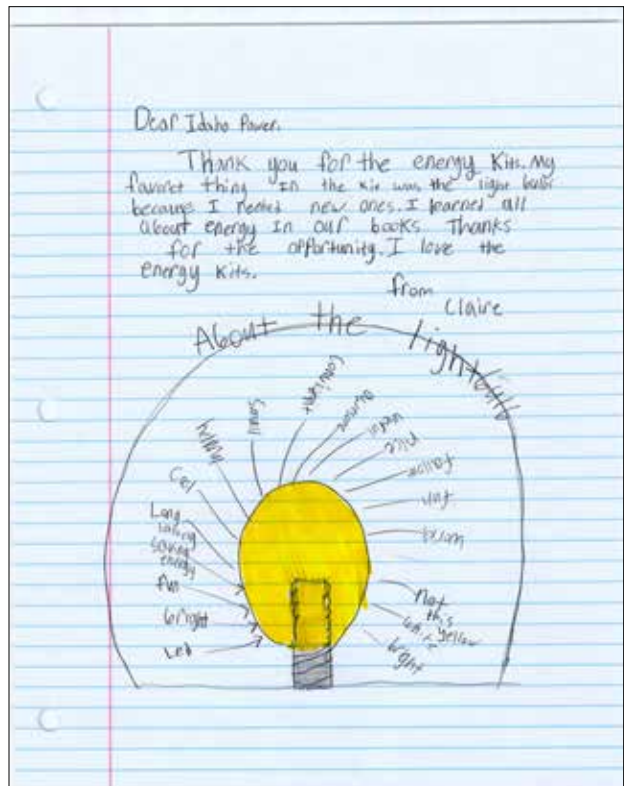 Dear Idaho Power.
Thank you for the energy Kits. My
favoret thing in the kit was the light bulb
because I needed new ones. I learned all
about energy in our books Thanks
for the opportunity. I love the
energy kits.
from
Claire
About the lightbulb
small
Long
lasting
saving
energy
fun
bright
Led
useful
nice
fun
not
this
yellow
bright